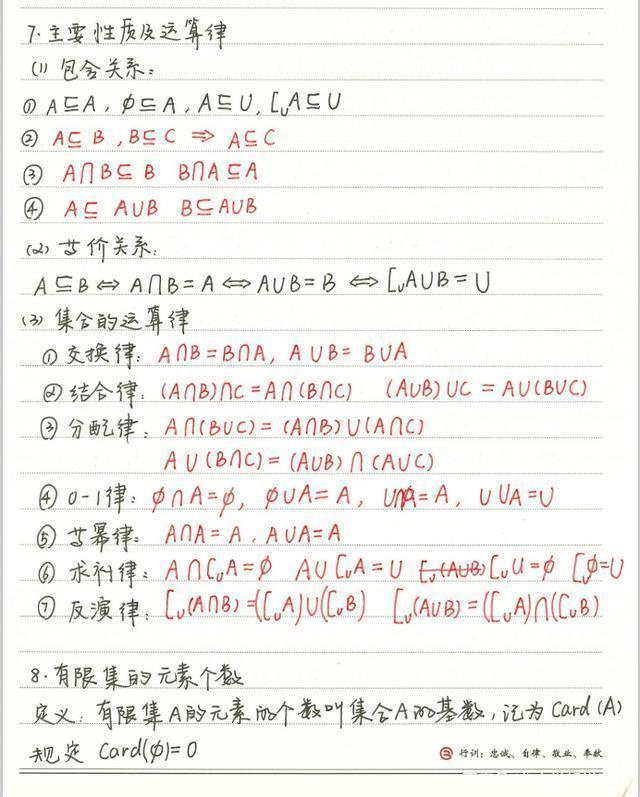 7.主要性质及运算律
(1) 包含关系:
① A⊆A, ∅⊆A, A⊆U, ∁ᵤA⊆U
② A⊆B, B⊆C ⇒ A⊆C
③ A∩B⊆B B∩A⊆A
④ A⊆A∪B B⊆A∪B
(2) 等价关系:
A⊆B⇔A∩B=A⇔A∪B=B⇔∁ᵤA∪B=U
(3) 集合的运算律
① 交换律: A∩B=B∩A, A∪B=B∪A
② 结合律: (A∩B)∩C=A∩(B∩C) (A∪B)∪C=A∪(B∪C)
③ 分配律: A∩(B∪C)=(A∩B)∪(A∩C)
A∪(B∩C)=(A∪B)∩(A∪C)
④ 0-1律: ∅∩A=∅, ∅∪A=A, U∩A=A, U∪A=U
⑤ 等幂律: A∩A=A, A∪A=A
⑥ 求补律: A∩∁ᵤA=∅ A∪∁ᵤA=U ∁ᵤ(A∪B) ∁ᵤU=∅ ∁ᵤ∅=U
⑦ 反演律: ∁ᵤ(A∩B)=(∁ᵤA)∪(∁ᵤB) ∁ᵤ(A∪B)=(∁ᵤA)∩(∁ᵤB)
8.有限集的元素个数
定义: 有限集A的元素的个数叫集合A的基数,记为Card(A)
规定 Card(∅)=0
行训:忠诚、自律、敬业、奉献